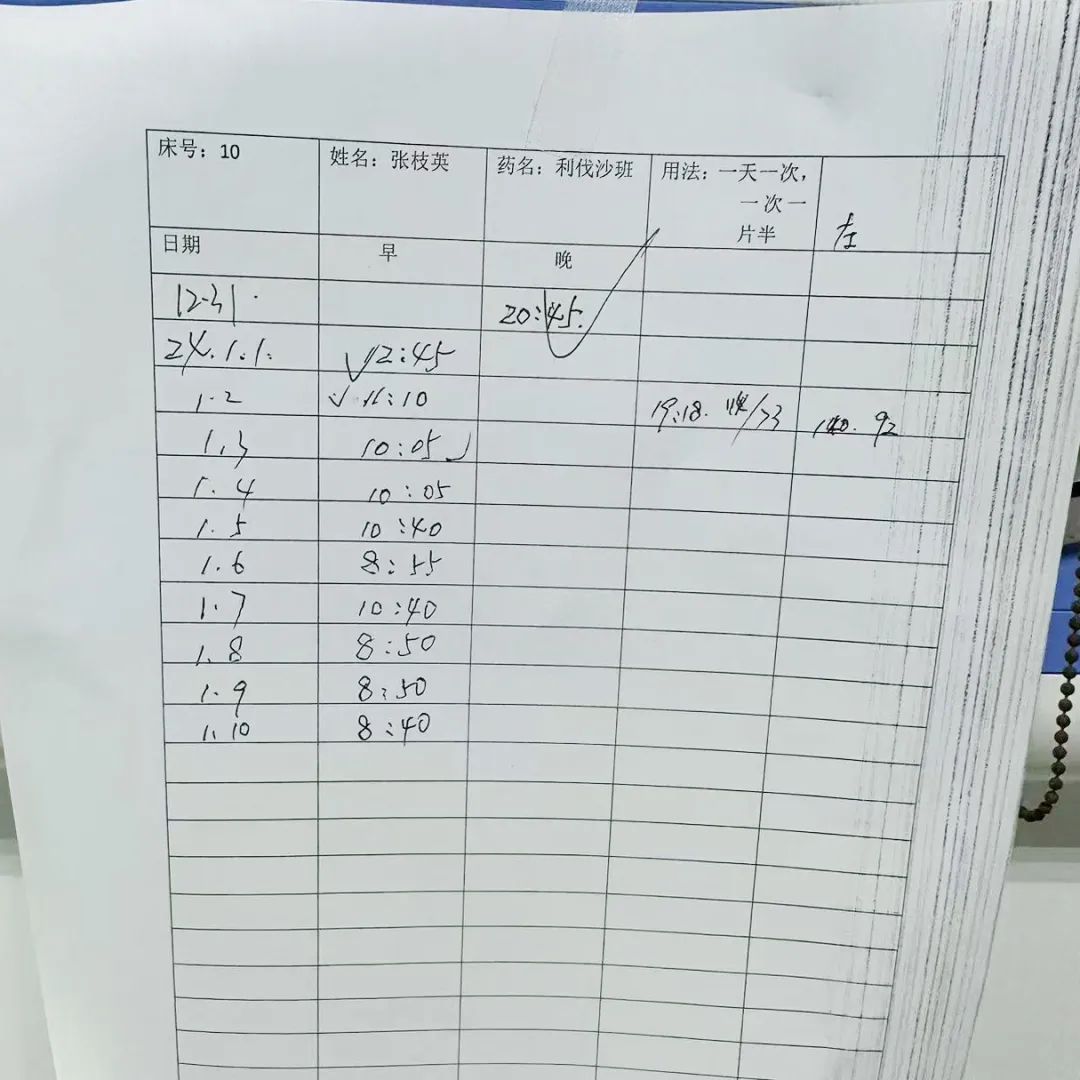 床号：10
姓名：张枝英
药名：利伐沙班
用法：一天一次，
一次一
片半
左
日期
早
晚
12.31.
20:45.
24.1.1.
12:45
1.2
11:10
19:18.
/73
92
1.3
10:05
1.4
10:05
1.5
10:40
1.6
8:55
1.7
10:40
1.8
8:50
1.9
8:50
1.10
8:40